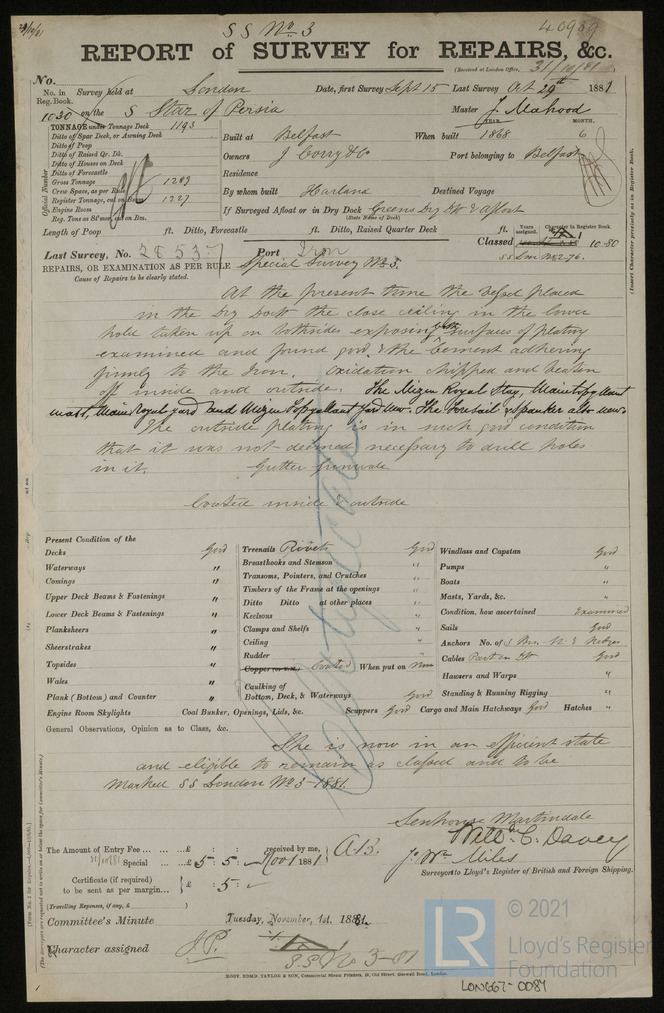 29/10/81
S S No 3
40959
REPORT of SURVEY for REPAIRS, &c.
(Received at London Office, 31/10/81
No.
No. in Reg. Book. Survey held at London Date, first Survey Sept 15 Last Survey Oct 29th 1881
1030 on the S Star of Persia Master J. Mahood
TONNAGE under Tonnage Deck 1193
YEAR. MONTH.
Ditto of Spar Deck, or Awning Deck
Built at Belfast When built 1868 6
Ditto of Poop
Ditto of Raised Qr. Dk.
Owners J Corry & Co Port belonging to Belfast
Ditto of Houses on Deck
Ditto of Forecastle
Residence
Gross Tonnage 1289
Crew Space, as per Rule
By whom built Harland Destined Voyage
Register Tonnage, cut on Beam 1227
Engine Room
If Surveyed Afloat or in Dry Dock Greens Dry Dk & Afloat
(State Name of Dock)
Reg. Tons as St'mer, cut on Bm.
Official Number
Length of Poop ft. Ditto, Forecastle ft. Ditto, Raised Quarter Deck ft.
Years assigned. Character in Register Book.
(Insert Character precisely as in Register Book.
Last Survey, No. 28537 Port Iron
Classed 10-80
SS Lon No 2-76.
REPAIRS, OR EXAMINATION AS PER RULE Special Survey No 3.
Cause of Repairs to be clearly stated.
At the present time the Vessel placed
in the Dry Dock the close ceiling in the lower
hold taken up on both sides exposing the surfaces of plating
examined and found good & the Cement adhering
firmly to the Iron. Oxidation chipped and beaten
off inside and outside. The Mizen Royal Stay, Maintopgallant
mast Main Royal yard and Mizen Topgallant yard new. The Foresail & Spanker also new.
The outside plating is in such good condition
that it was not deemed necessary to drill holes
in it. Gutter gunwale
Coated inside & outside
Present Condition of the
Decks Good
Waterways "
Comings "
Upper Deck Beams & Fastenings "
Lower Deck Beams & Fastenings "
Planksheers "
Sheerstrakes "
Topsides "
Wales "
Plank (Bottom) and Counter "
Engine Room Skylights Coal Bunker, Openings, Lids, &c. Scuppers Good Cargo and Main Hatchways Good Hatches "
Treenails Rivets Good
Breasthooks and Stemson "
Transoms, Pointers, and Crutches "
Timbers of the Frame at the openings "
Ditto Ditto at other places "
Keelsons "
Clamps and Shelfs "
Ceiling "
Rudder "
Copper (or Y.M.) Coated When put on Now
Caulking of
Bottom, Deck, & Waterways Good
Windlass and Capstan Good
Pumps "
Boats "
Masts, Yards, &c. "
Condition, how ascertained Examined
Sails Good
Anchors No. of 3 Brs. St & Kedges
Cables Part on Dk Good
Hawsers and Warps "
Standing & Running Rigging "
General Observations, Opinion as to Class, &c.
She is now in an efficient state
and eligible to remain as classed and to be
marked SS London No 3-1881.
Senhouse Martindale
Will. C. Davey
J. Wm Miles
Surveyors to Lloyd's Register of British and Foreign Shipping.
The Amount of Entry Fee ... ... ... £ : : received by me,
31/10/81 Special ... ... £ 5 : 5 : Nov 1 1881
Certificate (if required)
to be sent as per margin... £ : 5 :
(Travelling Expenses, if any, £ )
Committee's Minute Tuesday, November, 1st. 1881.
Character assigned
S.S. No 3-81
ROST. EDMD. TAYLOR & SON, Commercial Steam Printers, 19, Old Street, Goswell Road, London.
LR
© 2021
Lloyd's Register
Foundation
LON667-0084